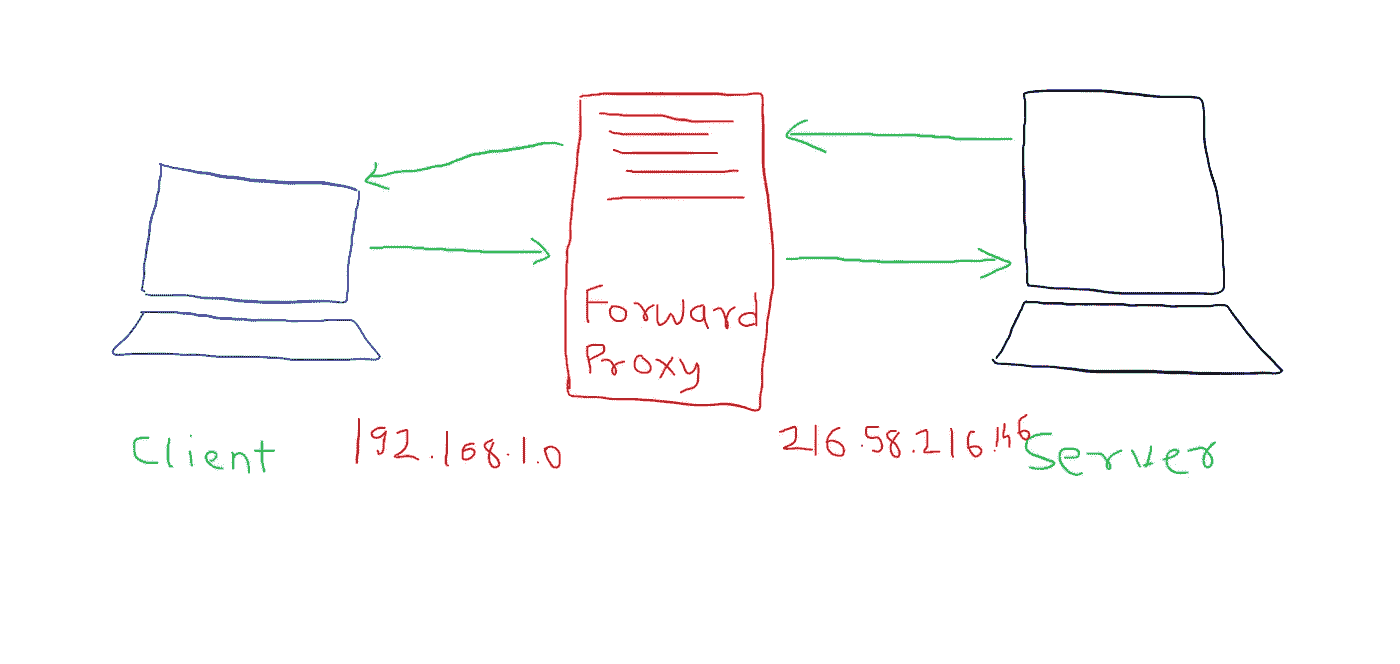 Forward
Proxy
Client
192.168.1.0
216.58.216.146
Server